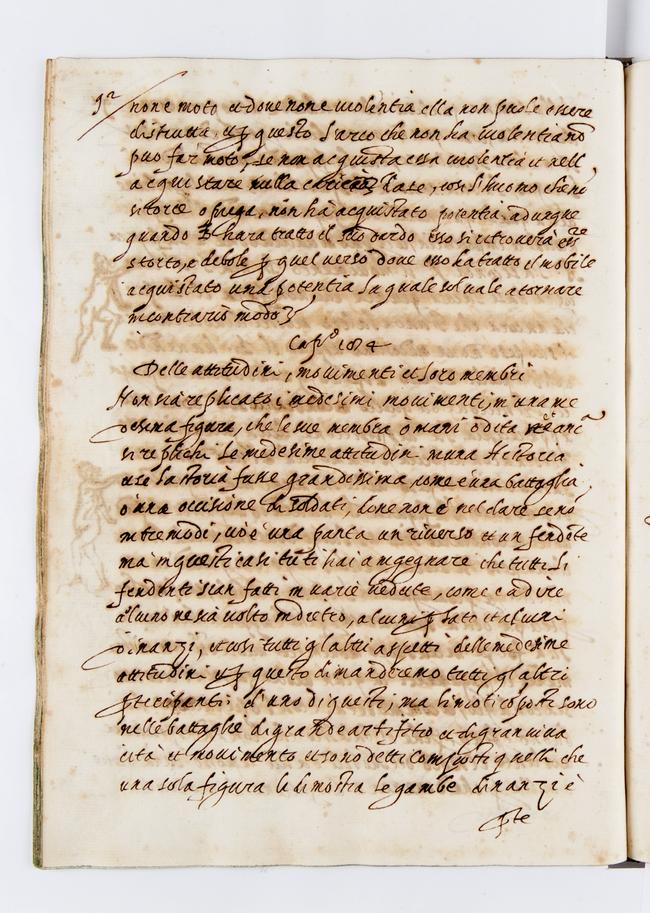 non e moto et dove non e violentia ella non puole essere
distrutta, et ꝑ questo l'arco che non ha violentia nō
puo far moto, se non acquista essa violentia et nell'
acquistare nulla  , così l'huomo che nō
si torce o piega, non hà acquistato potentia. adunque
quando hara tratto il suo dardo esso si ritrovera eṡṡre
storto, e debole ꝑ quel verso dove esso ha tratto il mobile
acquistato una potentia la quale sol vale a tornare
in contrario modo
Cap.º
Delle attitudini, movimenti et loro membri
Non sia replicato i medesimi movimenti, in una me
desima figura, che le sue membra ò mani ò dita nè anc
si replichi le medesime attitudini in una Historia
et se la storia fusse grandissima come è una battaglia
ò una occisione di soldati, dove non è nel dare senō
in tre modi, cioè una punta un riverso et un fendēte
ma in questi casi tu ti hai a ingegnare che tutti li
fendenti sian fatti in varie vedute, come è a dire
alcuno ne sia volto indietro, alcuni ꝑ lato et alcuni
dinanzi, et così tutti gl'altri aspetti delle medesime
attitudini et ꝑ questo dimanderemo tutti gl'altri
ꝑticipanti d'uno di questi, ma li moti cōposti sono
nelle battaglie di grande artifitio et di gran viva
cità et movimento et sono detti composti quelli che
una sola figura li dimostra le gambe dinanzi è
ꝑte